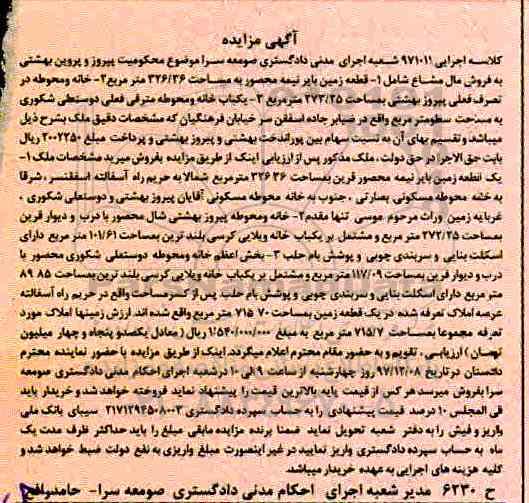 آگهی مزایده
کلاسه اجرایی ۹۷۱۰۱۱ شعبه اجرای مدنی دادگستری صومعه سرا موضوع محکومیت پیروز و پروین بهشتی
به فروش مال مشاع شامل ۱- قطعه زمین بایر نیمه محصور به مساحت ۳۲۶/۳۶ متر مربع ۲- خانه ومحوطه در
تصرف فعلی پیروز بهشتی بمساحت ۲۷۲/۲۵ مترمربع ۳- یکباب خانه ومحوطه متصرفی فعلی دوستعلی شکوری
به مساحت سطومتر مربع واقع در ضیابر جاده اسفقن سر خیابان فرهنگیان که مشخصات دقیق ملک بشرح ذیل
میباشد و تقسیم بهای آن به نسبت سهام بین پوراندخت بهشتی و پیروز بهشتی و پرداخت مبلغ ۲۰۰۲۲۵۰ ریال
بابت حق الاجرا در حق دولت ، ملک مذکور پس از ارزیابی اینک از طریق مزایده بفروش میرسد مشخصات ملک ۱-
یک قطعه زمین بایر نیمه محصور قرین بمساحت ۳۲۶/۳۶ مترمربع شمالا به حریم راه آسفالته اسفقنسر ،شرقا
به خانه محوطه مسکونی بصارتی ، جنوب به خانه محوطه مسکونی آقایان پیروز بهشتی و دوستعلی شکوری ،
غربا به زمین وراث مرحوم موسی تنها مقدم ۲- خانه ومحوطه پیروز بهشتی شال محصور با درب و دیوار قرین
بمساحت ۲۷۲/۲۵ متر مربع و مشتمل بر یکباب خانه ویلایی کرسی بلند ترین بمساحت ۱۰۱/۶۱ متر مربع دارای
اسکلت بنایی و سربندی چوبی و پوشش بام حلب ۳- بخش اعظم خانه ومحوطه دوستعلی شکوری محصور با
درب و دیوار قرین بمساحت ۱۱۷/۰۹ متر مربع و مشتمل بر یکباب خانه ویلایی کرسی بلند ترین بمساحت ۸۵ ۸۹
متر مربع دارای اسکلت بنایی و سربندی چوبی و پوشش بام حلب پس از کسر مساحت واقع در حریم راه آسفالته
عرصه املاک تعرفه شده در یک قطعه زمین بمساحت ۷۰ ۷۱۵ متر مربع واقع شده اند. ارزش زمینها املاک مورد
تعرفه مجموعا بمساحت ۷۱۵/۷ متر مربع به مبلغ ۱/۵۴۰/۰۰۰/۰۰۰ ریال (معادل یکصدو پنجاه و چهار میلیون
تومان) ارزیابی ، تقویم و به حضور مقام محترم اعلام میگردد. اینک از طریق مزایده با حضور نماینده محترم
دادستان در تاریخ ۹۷/۱۲/۰۸ روز چهارشنبه از ساعت ۹ الی ۱۰ درشعبه اجرای احکام مدنی دادگستری صومعه
سرا بفروش میرسد هر کس از قیمت پایه بالاترین قیمت را پیشنهاد نماید فروخته خواهد شد و خریدار باید
فی المجلس ۱۰ درصد قیمت پیشنهادی را به حساب سپرده دادگستری ۲۱۷۱۲۹۴۵۰۸۰۰۳ سیبای بانک ملی
واریز و فیش را به دفتر شعبه تحویل نماید ضمنا برنده مزایده مابقی مبلغ را باید حداکثر ظرف مدت یک
ماه به حساب سپرده دادگستری واریز نمایید در غیر اینصورت مبلغ واریزی به نفع دولت ضبط خواهد شد و
کلیه هزینه های اجرایی به عهده خریدار میباشد.
ح ۶۲۳۰ مدیر شعبه اجرای احکام مدنی دادگستری صومعه سرا-